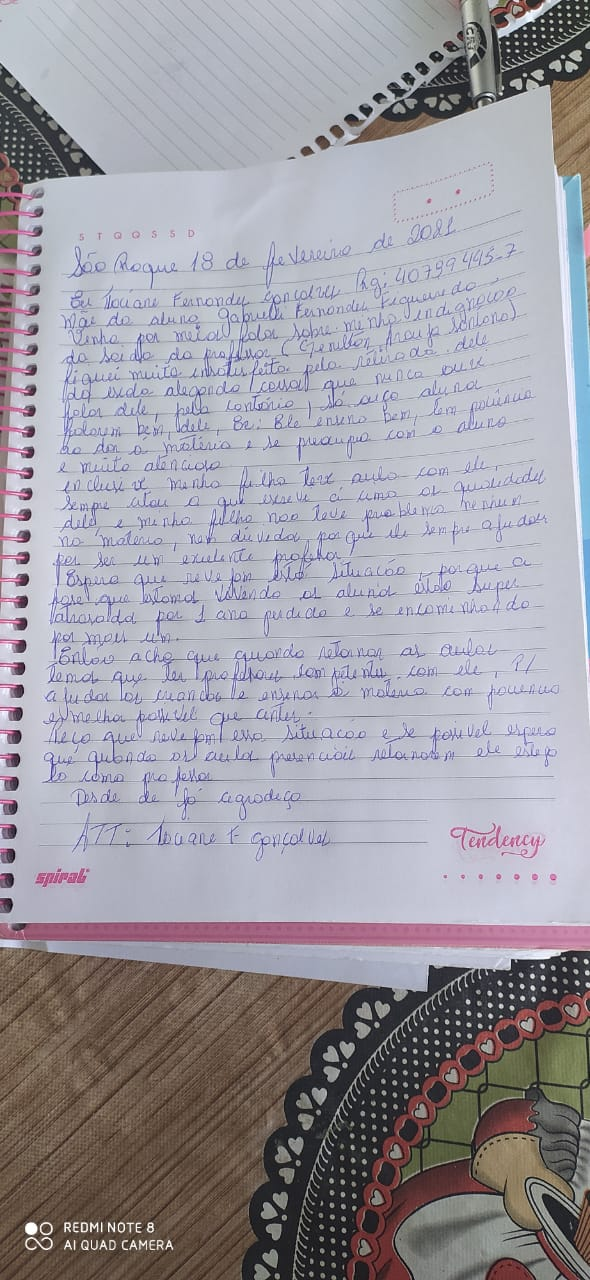 S T Q Q S S D
São Roque 18 de fevereiro de 2021
Eu Jociane Fernandes Gonçalves Rg: 40799445-7
Mãe do aluno Gabrielli Fernandes Figueiredo,
Venho por meio falar sobre minha indignação
da saida do professor (Genilton Araujo Santana)
fiquei muito insatisfeita pela retirada dele
da escola alegando (coisas) que nunca ouvi
falar dele, pelo contário, só ouço aluna
falarem bem dele, Ex: Ele ensina bem, tem paciência
ao dar a matéria e se preocupa com o aluno
e muito atencioso
inclusive minha filha teve aula com ele,
sempre citou a que escrevi ci uma as qualidades
dele, e minha filha nao teve problema nenhum
na materia, nem dúvidas, porque ele sempre ajudar
por ser um exelente profesor.
Espero que revejam esta situação, porque a
fase que estamos vivendo os alunos estão super
atrasada por 1 ano perdido e se encaminhando
por mais um.
Então acho que quando retornar as aulas
temos que ter professores competentes com ele, p/
ajudar as criandas e ensinar a materia com paciencia
e melhor possivel que antes.
Peço que revejam essa situação e se posivel espero
que quando as aulas presenciais retornarem ele esteja
lá como professor
Desde de já agradeço
ATT: Jociane F Gonçalves
Tendency
spiral
REDMI NOTE 8
AI QUAD CAMERA